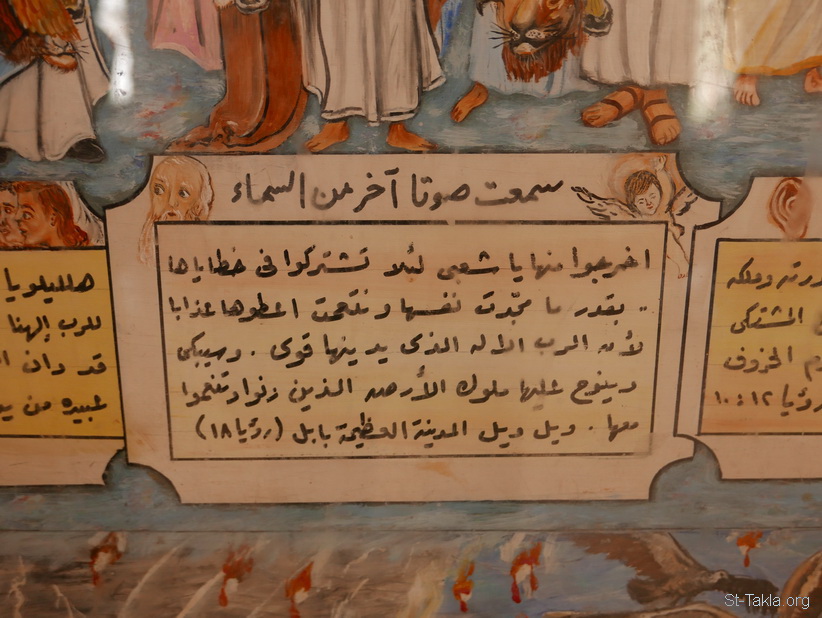 سمعت صوتا آخر من السماء
اخرجوا منها يا شعبى لئلا تشتركوا فى خطاياها
.. بقدر ما مجّدت نفسها وتنعمت اعطوها عذابا
لأن الرب الاله الذى يدينها قوى . وسيبكى
وينوح عليها ملوك الأرض الذين زنوا وتنعموا
معها . ويل ويل المدينة العظيمة بابل (رؤيا ١٨)
هلليلويا
للرب إلهنا
قد دان
عبيده من
وملكه
المشتكى
دم الخروف
رؤيا ١٢ : ١٠
St-Takla.org